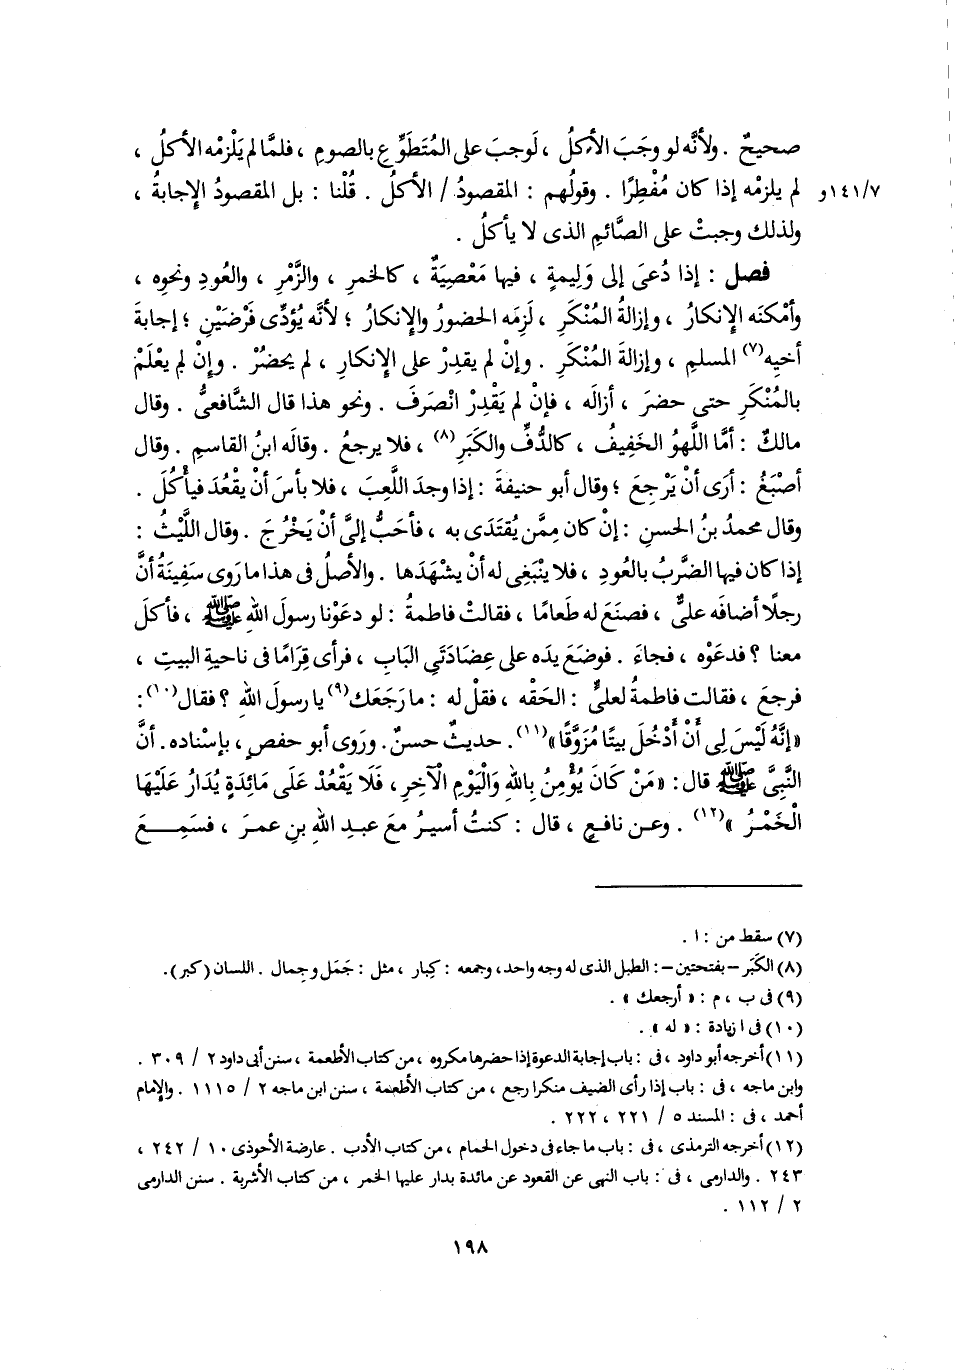 صحيحٌ . ولأنَّه لو وجَبَ الأكلُ ، لَوجبَ على المُتَطَوِّعِ بالصومِ ، فلمَّا لم يَلْزمْه الأكلُ ،
١٤١/٧و لم يلزمْه إذا كان مُفْطِرًا . وقولُهم : المقصودُ / الأكلُ . قُلْنا : بل المقصودُ الإجابةُ ،
ولذلك وجبتْ على الصَّائمِ الذى لا يأكلُ .
فصل : إذا دُعىَ إلى وَلِيمةٍ ، فيها مَعْصِيَةٌ ، كالخمرِ ، والزَّمْرِ ، والعُودِ ونحوِه ،
وأمْكنَه الإنكارُ ، وإزالةُ المُنْكَرِ ، لَزِمَه الحضورُ والإنكارُ ؛ لأنَّه يُؤدِّى فَرْضَيْنِ ؛ إجابةَ
أخيِه(٧) المسلمِ ، وإزالةَ المُنْكَرِ . وإنْ لم يقدِرْ على الإنكارِ ، لم يحضُرْ . وإنْ لم يعْلَمْ
بالمُنْكَرِ حتى حضرَ ، أزالَه ، فإنْ لم يَقْدِرْ انْصرَفَ . ونحو هذا قال الشَّافعىُّ . وقال
مالكٌ : أمَّا اللَّهوُ الخَفِيفُ ، كالدُّفِّ والكَبَرِ(٨) ، فلا يرجعُ . وقالَه ابنُ القاسمِ . وقال
أصْبَغُ : أرَى أنْ يَرْجِعَ ؛ وقال أبو حنيفةَ : إذا وجدَ اللَّعِبَ ، فلا بأسَ أنْ يقْعُدَ فيأْكُلَ .
وقال محمدُ بنُ الحسنِ : إنْ كان مِمَّن يُقتَدَى به ، فأحَبُّ إلىَّ أنْ يَخْرُجَ . وقال اللَّيْثُ :
إذا كان فيها الضَّربُ بالعُودِ ، فلا ينْبَغِى له أنْ يشْهَدَها . والأصلُ فى هذا ما رَوى سَفِينَةُ أنَّ
رجلًا أضافَه علىٌّ ، فصنَعَ له طَعامًا ، فقالتْ فاطمةُ : لو دعَوْنا رسولَ اللهِ ﷺ ، فأكلَ
معنا ؟ فدعَوْه ، فجاءَ . فوضَعَ يدَه على عِضَادَتَىِ البَابِ ، فرأى قِرَامًا فى ناحيةِ البيتِ ،
فرجعَ ، فقالت فاطمةُ لعلىٍّ : الحَقْه ، فقلْ له : ما رَجَعَك(٩) يا رسولَ اللهِ ؟ فقال(١٠) :
« إنَّهُ لَيْسَ لِى أَنْ أَدْخُلَ بيتًا مُزَوَّقًا »(١١) . حديثٌ حسنٌ . ورَوى أبو حفصٍ ، بإسْناده . أنَّ
النَّبِىَّ ﷺ قال : « مَنْ كَانَ يُؤْمِنُ بِاللهِ وَالْيَوْمِ الْآخِرِ ، فَلَا يَقْعُدْ عَلَى مَائِدَةٍ يُدَارُ عَلَيْهَا
الْخَمْرُ »(١٢) . وعـن نافـعٍ ، قال : كنتُ أسيـرُ معَ عبـدِ اللهِ بنِ عمـرَ ، فسَمِـعَ
(٧) سقط من : ا .
(٨) الكَبَر – بفتحتين – : الطبل الذى له وجه واحد ، وجمعه : كِبار ، مثل : جَمَل وجِمال . اللسان (كبر) .
(٩) فى ب ، م : « أرجعك » .
(١٠) فى ا زيادة : « له » .
(١١) أخرجه أبو داود ، فى : باب إجابة الدعوة إذا حضرها مكروه ، من كتاب الأطعمة ، سنن أبى داود ٢ / ٣٠٩ .
وابن ماجه ، فى : باب إذا رأى الضيف منكرا رجع ، من كتاب الأطعمة ، سنن ابن ماجه ٢ / ١١١٥ . والإمام
أحمد ، فى : المسند ٥ / ٢٢١ ، ٢٢٢ .
(١٢) أخرجه الترمذى ، فى : باب ما جاء فى دخول الحمام ، من كتاب الأدب . عارضة الأحوذى ١٠ / ٢٤٢ ،
٢٤٣ . والدارمى ، فى : باب النهى عن القعود عن مائدة يدار عليها الخمر ، من كتاب الأشربة . سنن الدارمى
٢ / ١١٢ .
١٩٨